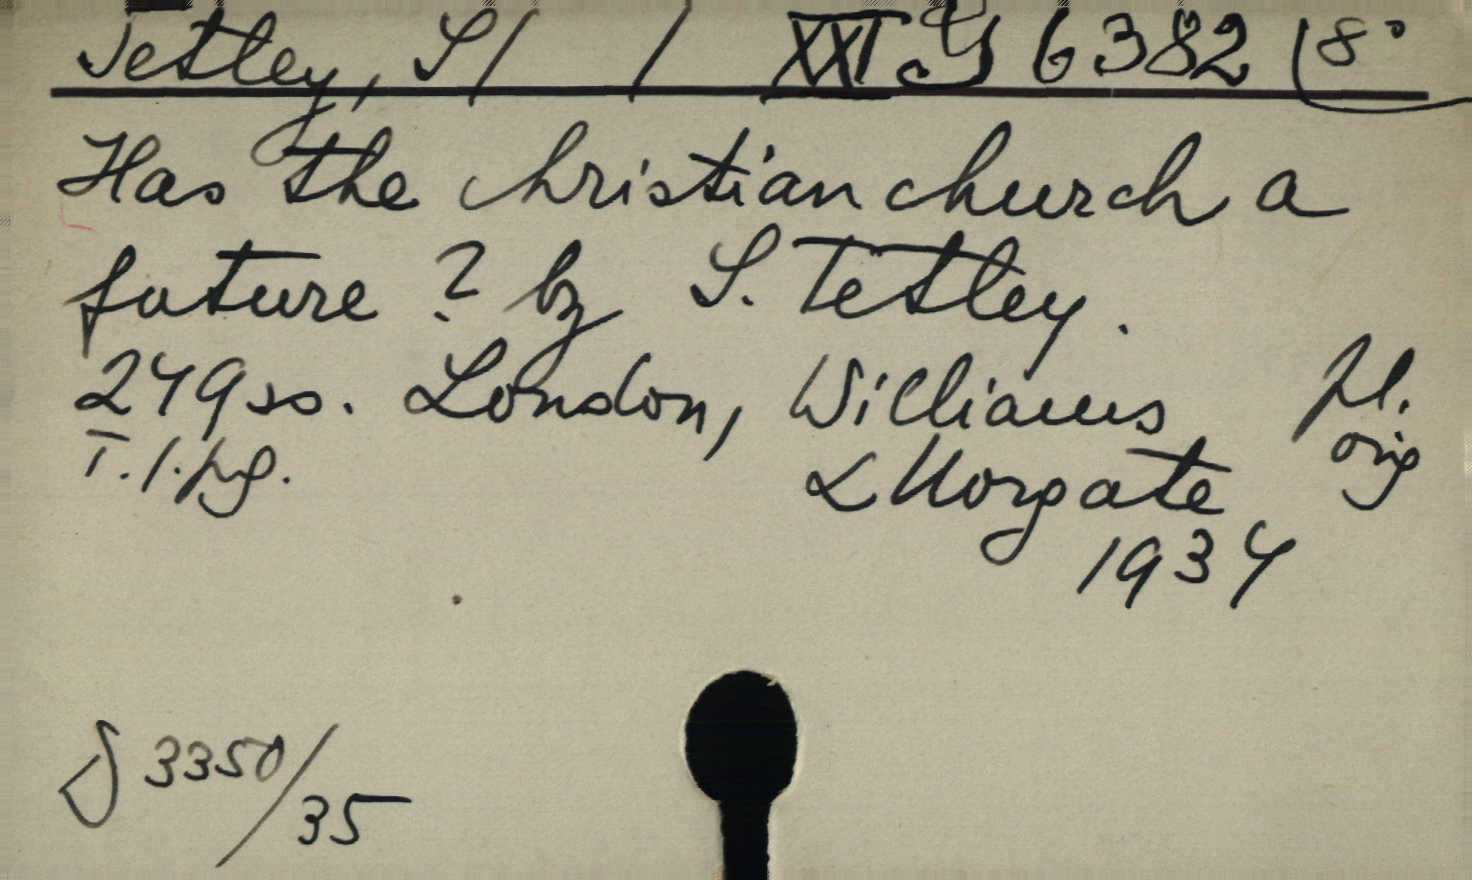 Tetley, S/ / XXI G 6382 (8°
Has the christian church a
future ? by S. Tetley.
249 ss. London, Williams
& Norgate
1934
T. 1. pg.
pl.
orig
J 3350/35